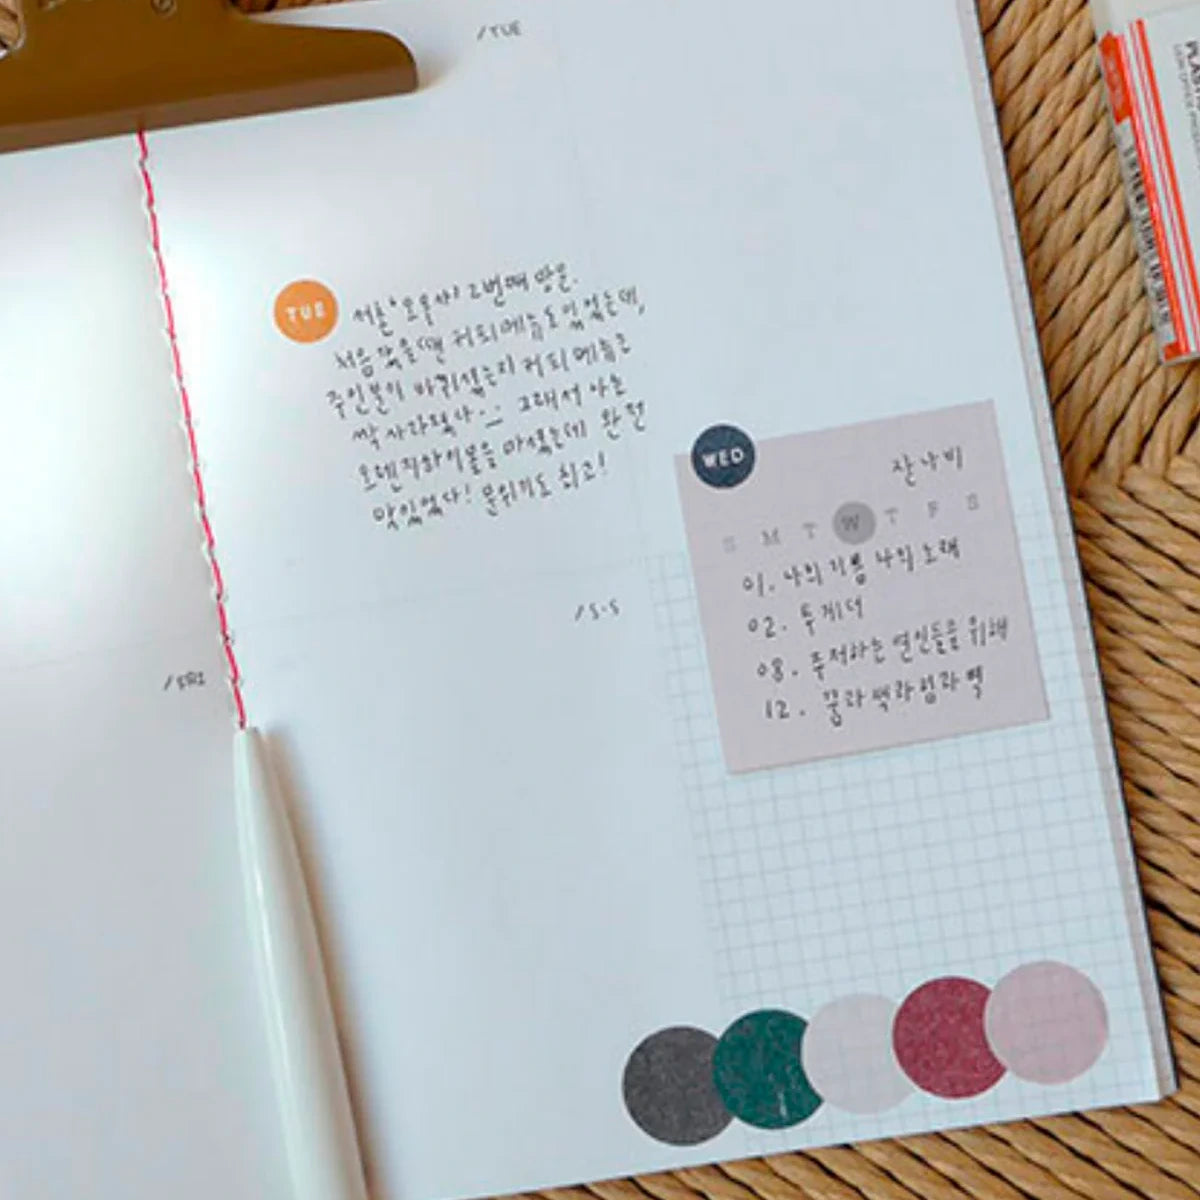 /TUE
TUE
서촌 '오몽사' 2번째 방문.
처음 갔을 땐 커피메뉴도 있었는데,
주인분이 바뀌셨는지 커피메뉴는
싹 사라졌다 그래서 나는
오렌지와이불을 마셨는데 완전
맛있었다! 분위기도 최고!
WED
잔나비
S M T W T F S
01. 나의 기쁨 나의 노래
02. 투게더
08. 주저하는 연인들을 위해
12. 꿈과 책과 힘과 벽
/S·S
/FRI